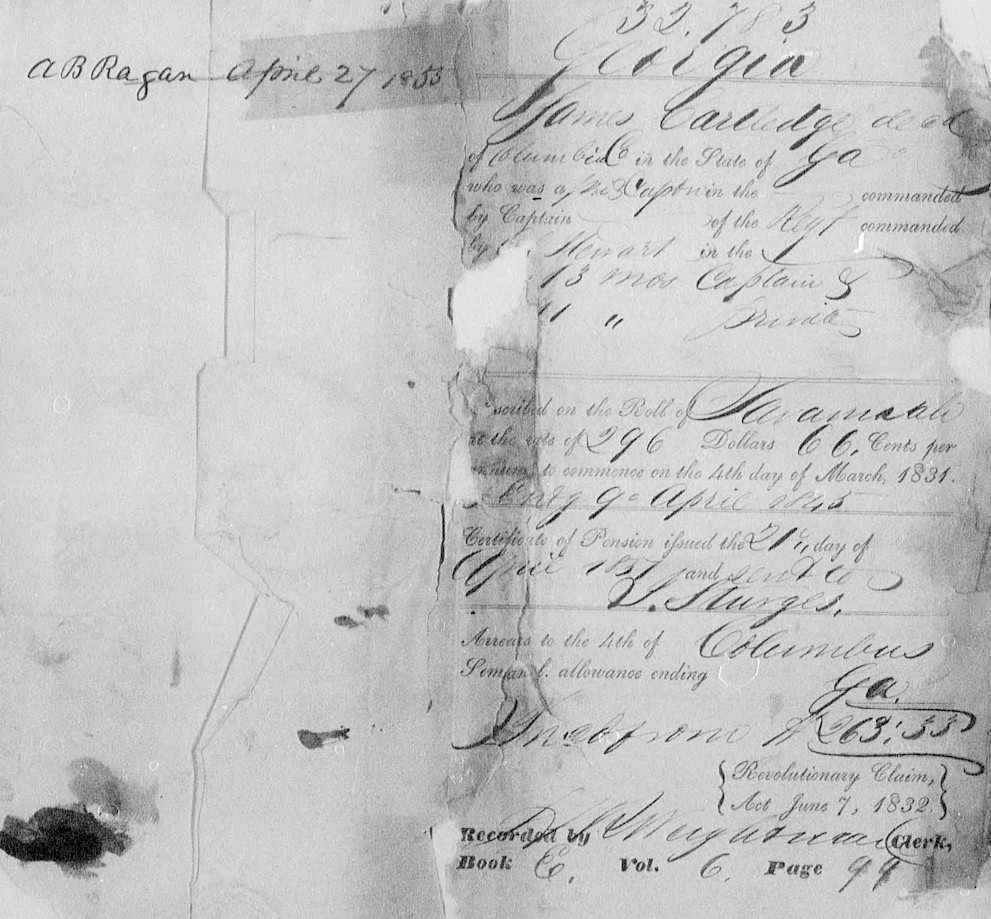 A B Ragan April 27 1853
32.783
Georgia
James Cartledge dead
of Columbia Co in the State of Ga
who was a Captn in the commanded
by Captain of the Regt commanded
by Stewart in the
13 mos Captain &
11 " private
scribed on the Roll of Savannah
at the rate of 296 Dollars 66 Cents per
annum, to commence on the 4th day of March, 1831.
Endg 9th April 1845
Certificate of Pension issued the 21st day of
April and sent to
Sturges,
Arrears to the 4th of Columbus
Seml. allowance ending
Ga.
263:33
Revolutionary Claim,
Act June 7, 1832.
Recorded by Weightman Clerk,
Book E. Vol. 6. Page 99